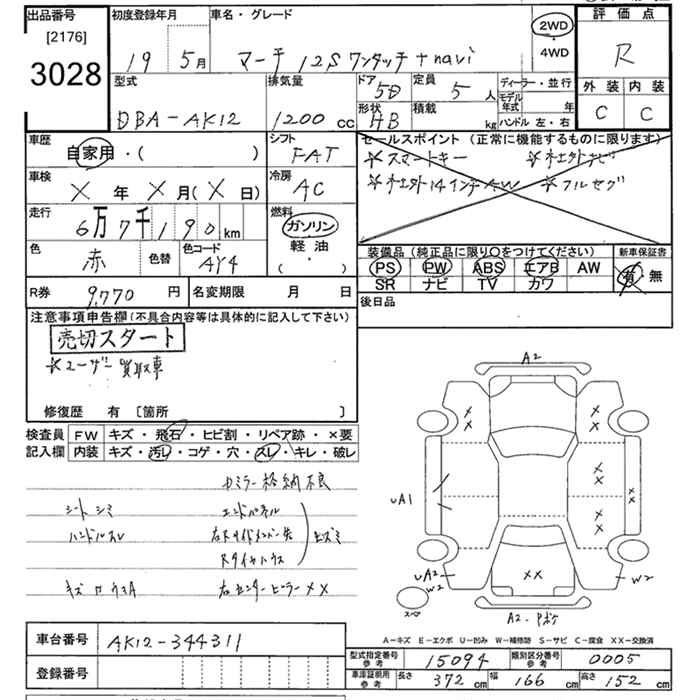 出品番号
[2176]
3028
初度登録年月
19 5月
車名・グレード
マーチ 12S ワンタッチ+navi
2WD
・
4WD
評価点
R
外装 内装
C C
型式
DBA-AK12
排気量
1200 cc
ドア
5D
形状
HB
定員
5人
積載
kg
ディーラー・並行
モデル年式 年
ハンドル 左・右
車歴
自家用・( )
シフト
FAT
セールスポイント (正常に機能するものに限ります)
☆スマートキー ☆社外ナビ
☆社外14インチAW ☆フルセグ
車検
X年 X月(X日)
冷房
AC
走行
6万7千190km
燃料
ガソリン
軽油
( ・ )
色
赤
色替
色コード
AY4
装備品 (純正品に限り○をつけてください)
PS PW ABS エアB AW
SR ナビ TV カワ
新車保証書
有・無
R券 9,770円
名変期限 月 日
後日品
注意事項申告欄(不具合内容等は具体的に記入して下さい)
売切スタート
☆ユーザー買取車
修復歴 有 [箇所 ]
検査員 FW キズ・飛石・ヒビ割・リペア跡・×要
記入欄 内装 キズ・汚レ・コゲ・穴・スレ・キレ・破レ
カミラー格納不良
シートシミ エンドパネル
ハンドルスレ 右サイドメンバー先
Rタイヤハウス
キズ 右センターピラーXX
A2
X X
X X
X X
X X
X X
XX
UA1
UA2
W2
W2
XX
スペア
A2・
A-キズ E-エクボ U-凹み W-補修跡 S-サビ C-腐食 XX-交換済
車台番号 AK12-344311
登録番号
型式指定番号 参考 15094
類別区分番号 参考 0005
車庫証明用 参考 長さ 372cm 幅 166cm 高さ 152cm